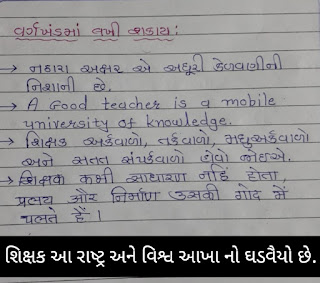 વર્ગખંડમાં લખી શકાય:
→ નઠારા અક્ષર એ અધૂરી કેળવણીની
નિશાની છે.
→ A Good teacher is a mobile
university of knowledge.
→ શિક્ષક અર્કવાળો, તર્કવાળો, મધુઅર્કવાળો
અને સતત સંપર્કવાળો હોવો જોઇએ.
→ શિક્ષક કભી સાધારણ નહિ હોતા,
પ્રલય और निर्माण उसकी गोद में
पलते हैं ।
શિક્ષક આ રાષ્ટ્ર અને વિશ્વ આખા નો ઘડવૈયો છે.